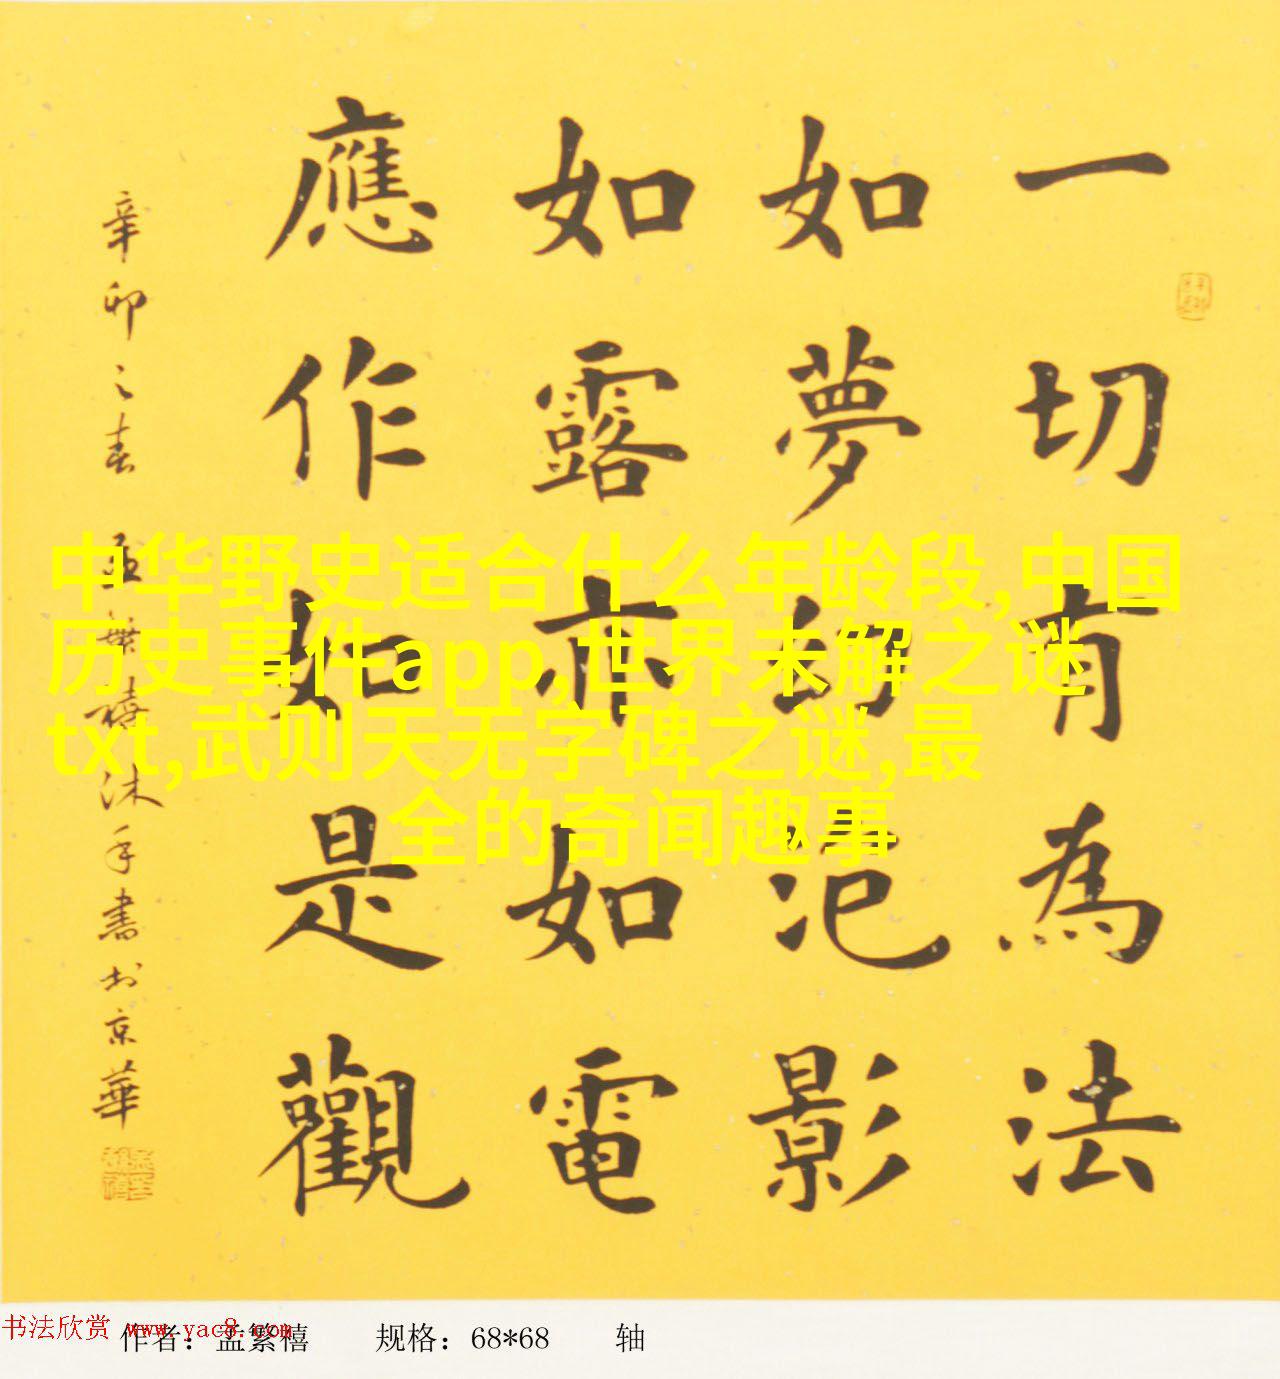 一切有為法
如夢幻泡影
如露亦如電
應作如是觀
辛卯之春 孟繁禧沐手書於京華
中华野史适合什么年龄段,中国
历史事件app,世界未解之谜
txt,武则天无字碑之谜,最
全的奇闻趣事
书法欣赏 www.yac8.com
作者：孟繁禧 规格：68*68 轴